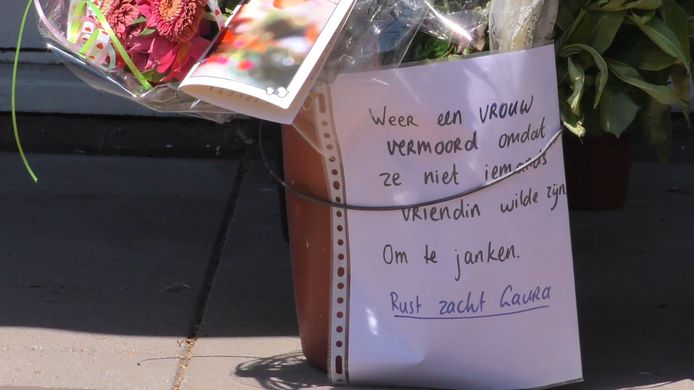 Weer een VROUW
VERMOORD omdat
ze niet iemands
vriendin wilde zijn
Om te janken.
Rust zacht Laura